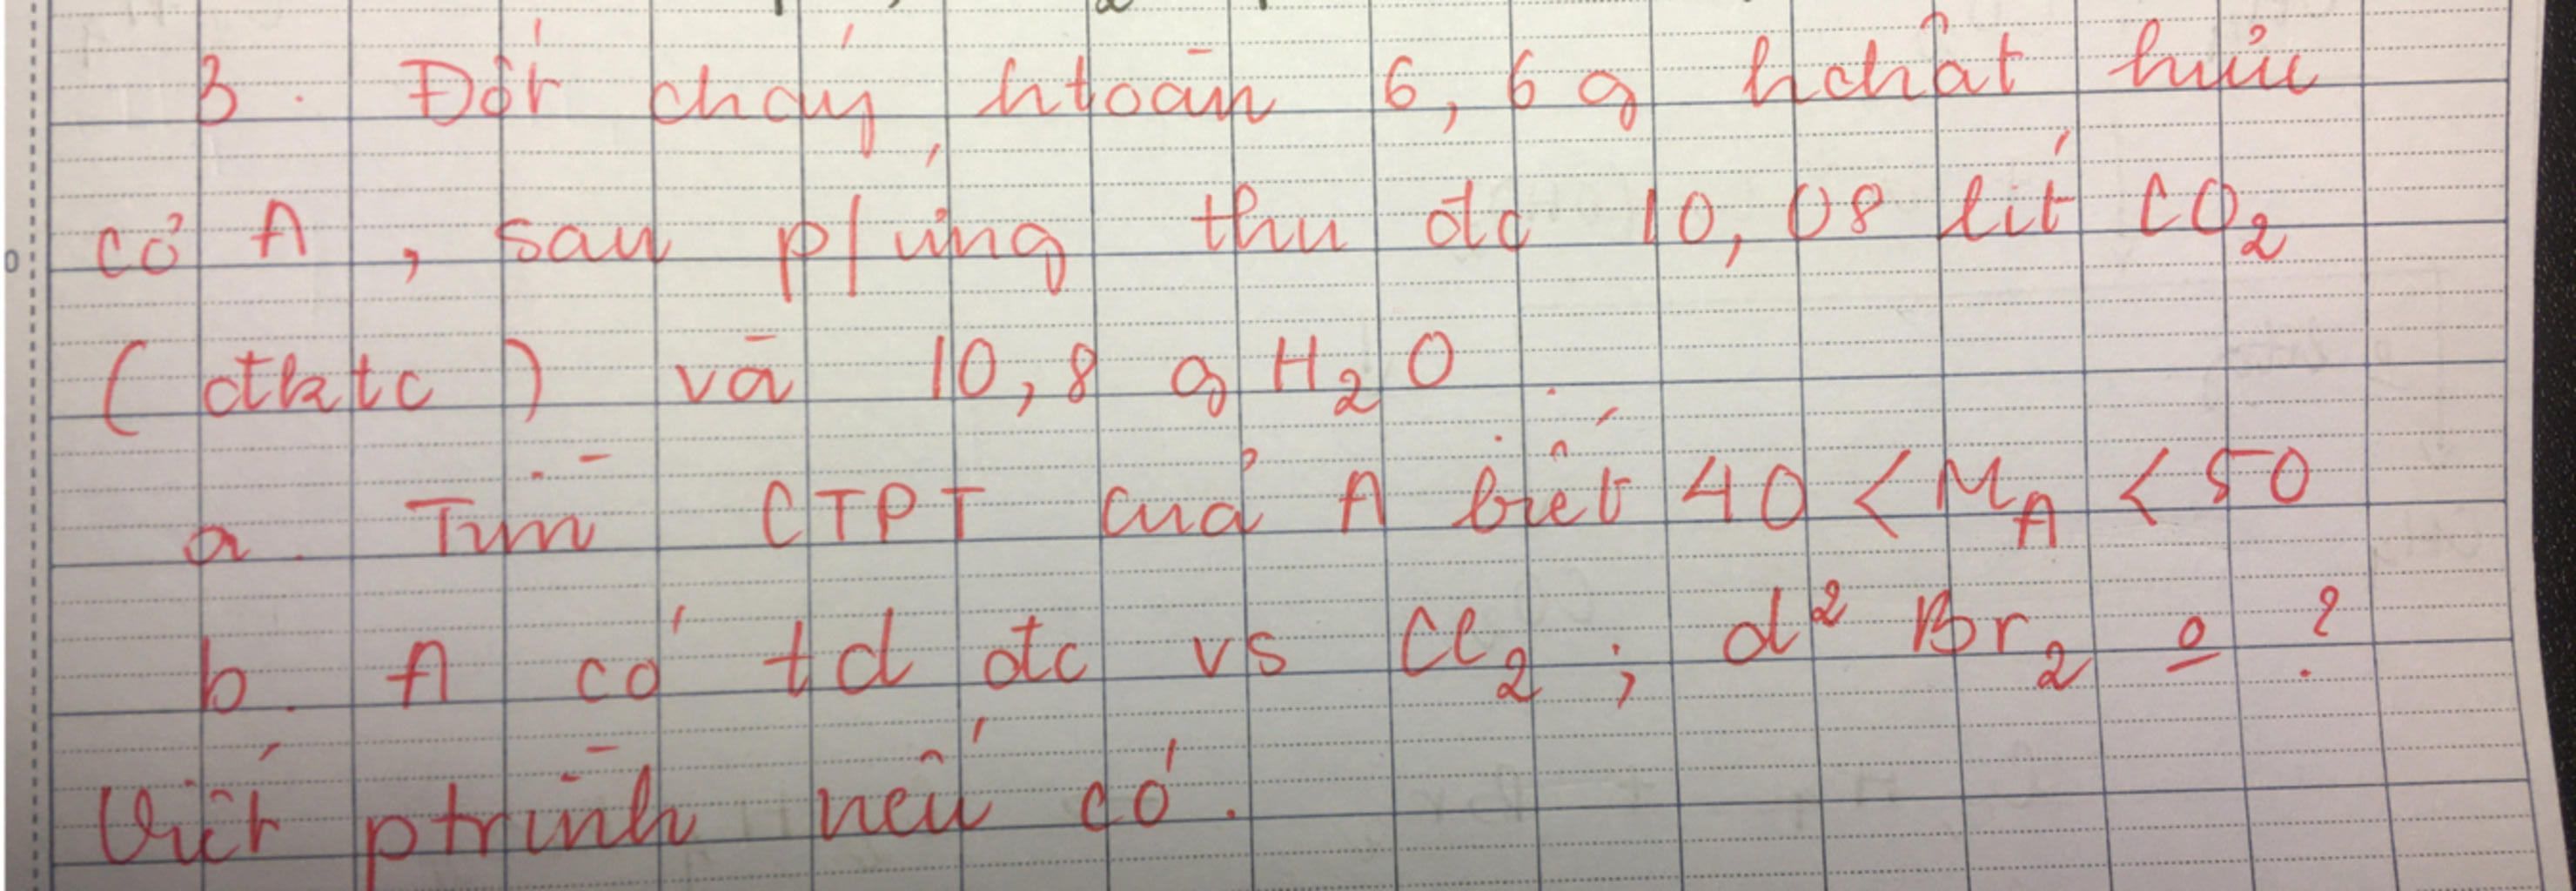 3. Đốt cháy htoàn 6,6g hchất hữu
cơ A, sau p/ứng thu đc 10,08 lít CO2
(đktc) và 10,8 g H2O.
a. Tìm CTPT của A biết 40 < MA < 50
b. A có td đc vs Cl2; d² Br2 o ?
Viết ptrình nếu có.